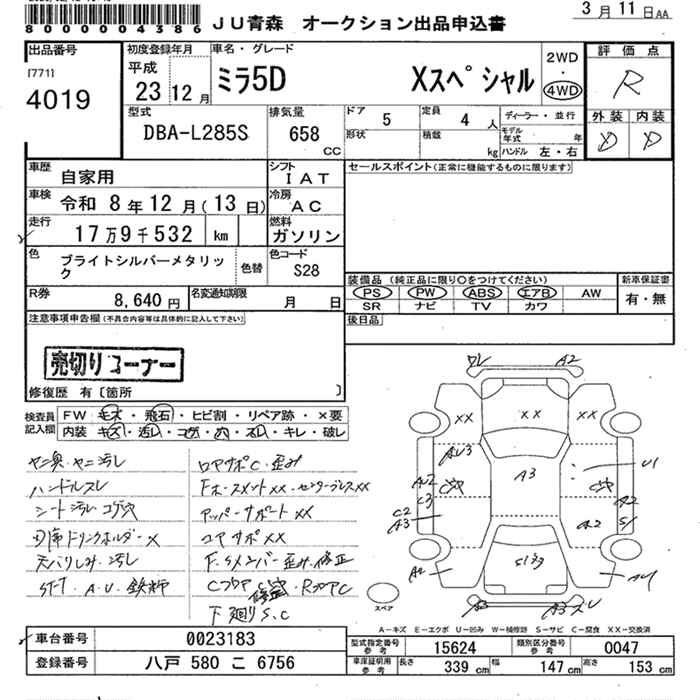 8000004386 JU青森 オークション出品申込書 3月11日AA
出品番号
[771]
4019
初度登録年月
平成
23 12月
車名・グレード
ミラ5D Xスペシャル
2WD
・
4WD
評価点
R
外装 内装
D D
型式
DBA-L285S
排気量
658
CC
ドア 5
定員 4 人
形状
積載 kg
ディーラー・並行
モデル年式 年
ハンドル 左・右
車歴 自家用
シフト
IAT
車検 令和 8年 12月(13日)
冷房
AC
走行 17万9千532 km
燃料
ガソリン
色 ブライトシルバーメタリック
色替
色コード
S28
R券 8,640円
名変通知期限 月 日
セールスポイント(正常に機能するものに限ります)
装備品(純正品に限り○をつけてください)
PS PW ABS エアB AW
SR ナビ TV カワ
新車保証書
有・無
後日品
注意事項申告欄(不具合内容等は具体的に記入して下さい)
売切りコーナー
修復歴 有〔箇所 〕
検査員記入欄
FW キズ・飛石・ヒビ割・リペア跡・×要
内装 キズ・汚レ・コゲ・穴・スレ・キレ・破レ
ヤニ臭・ヤニ汚レ
ハンドルスレ
シート汚レコゲ穴
天バリしみ・汚レ
ロアサポC・歪み
アッパーサポートXX
コアサポXX
下廻りS.C
A2
XX XX XX
AU3
A3
U1
C3
C2
A3
A2
A2
S1
スペア
A-キズ E-エクボ U-凹み W-補修跡 S-サビ C-腐食 XX-交換済
車台番号 0023183
登録番号 八戸 580 こ 6756
型式指定番号
参考
15624
類別区分番号
参考
0047
車庫証明用
参考
長さ 339cm 幅 147cm 高さ 153cm